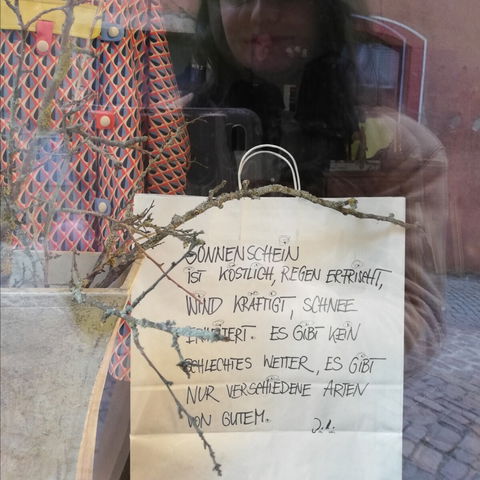 SONNENSCHEIN
IST KÖSTLICH, REGEN ERFRISCHT,
WIND KRÄFTIGT, SCHNEE
ERHEITERT. ES GIBT KEIN
SCHLECHTES WETTER, ES GIBT
NUR VERSCHIEDENE ARTEN
VON GUTEM.